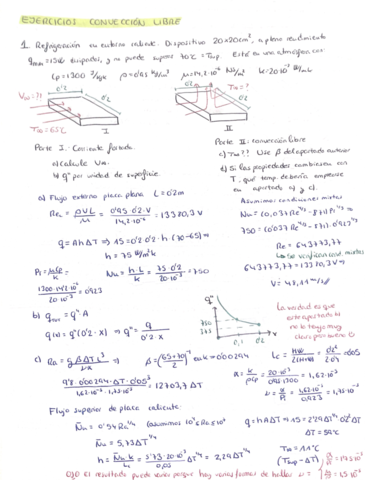 EJERCICIOS CONVECCIÓN LIBRE
1. Refrigeración en entorno caliente. Dispositivo 20x20cm², a pleno rendimiento
disipados, y no puede superar 70°C = Tsup. Está en una atmósfera con
cp = 1300 J/kgK ρ = 0,95 kg/m³ μ = 14,2·10⁻⁶ N·s/m² k = 20·10⁻³ W/mK
V∞ = ??
0'2
0'2
T∞ = 65°C
I
T∞ = ?
0'2
II
Parte I: Corriente forzada
a) Calcule V∞.
b) q" por unidad de superficie.
Parte II: convección libre
c) T∞?? Use β del apartado anterior
d) Si las propiedades cambiasen con
T, qué temp. debería emplearse
en apartado a) y c).
a) Flujo externo placa plana L = 0'2m
Re_L = ρVL/μ = 0'95·0'2·V/14,2·10⁻⁶ = 13380,3 V
q = AhΔT ⇒ 15 = 0'2·0'2·h (70-65) ⇒
h = 75 W/m²K
Pr = μcp/k = 1300·14'2·10⁻⁶/20·10⁻³ = 0'923
Nu = h·L/k = 75·0'2/20·10⁻³ = 750
Asumimos condiciones mixtas
Nu = (0,037Re^4/5 - 871)Pr^1/3
750 = (0,037 Re^4/5 - 871) 0'923^1/3
Re = 643773,77
↳ Se verifican cond. mixtas
643773,77 = 13380,3V ⇒
V = 48,11 m/s
b) q = q" A
q(x) = q"(0'2·x) ⇒ q" = q/0'2·x
q"
750
375
0,1
0,2
x
La verdad es que
este apartado b)
no lo tengo muy
claro
c) Ra = gβΔTL³/να ⇒ β = (65+70/2)⁻¹ en K = 0'00294
9'8·0'00294·ΔT·0'05³/1,62·10⁻⁵·1,75·10⁻⁵ = 12703,7 ΔT
α = k/ρcp = 20·10⁻³/0'95·1300 = 1,62·10⁻⁵
= 0'05
Flujo superior de placa caliente
Nu = 0'54 Ra^1/4 (asumimos 10⁴≤Ra≤10⁷
Nu = 5,73 ΔT^1/4
h = Nu·k/L = 5'73·20·10⁻³/0,05 ΔT^1/4 = 2,29 ΔT^1/4
q = hAΔT ⇒ 15 = 2'29ΔT^1/4·0'2²·ΔT
T∞ = 11°C
(Tsup - ΔT)
OJO El resultado puede variar porque hay varias formas de hallar